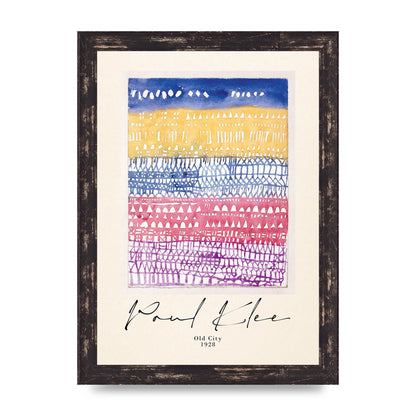 Paul Klee
Old City
1928